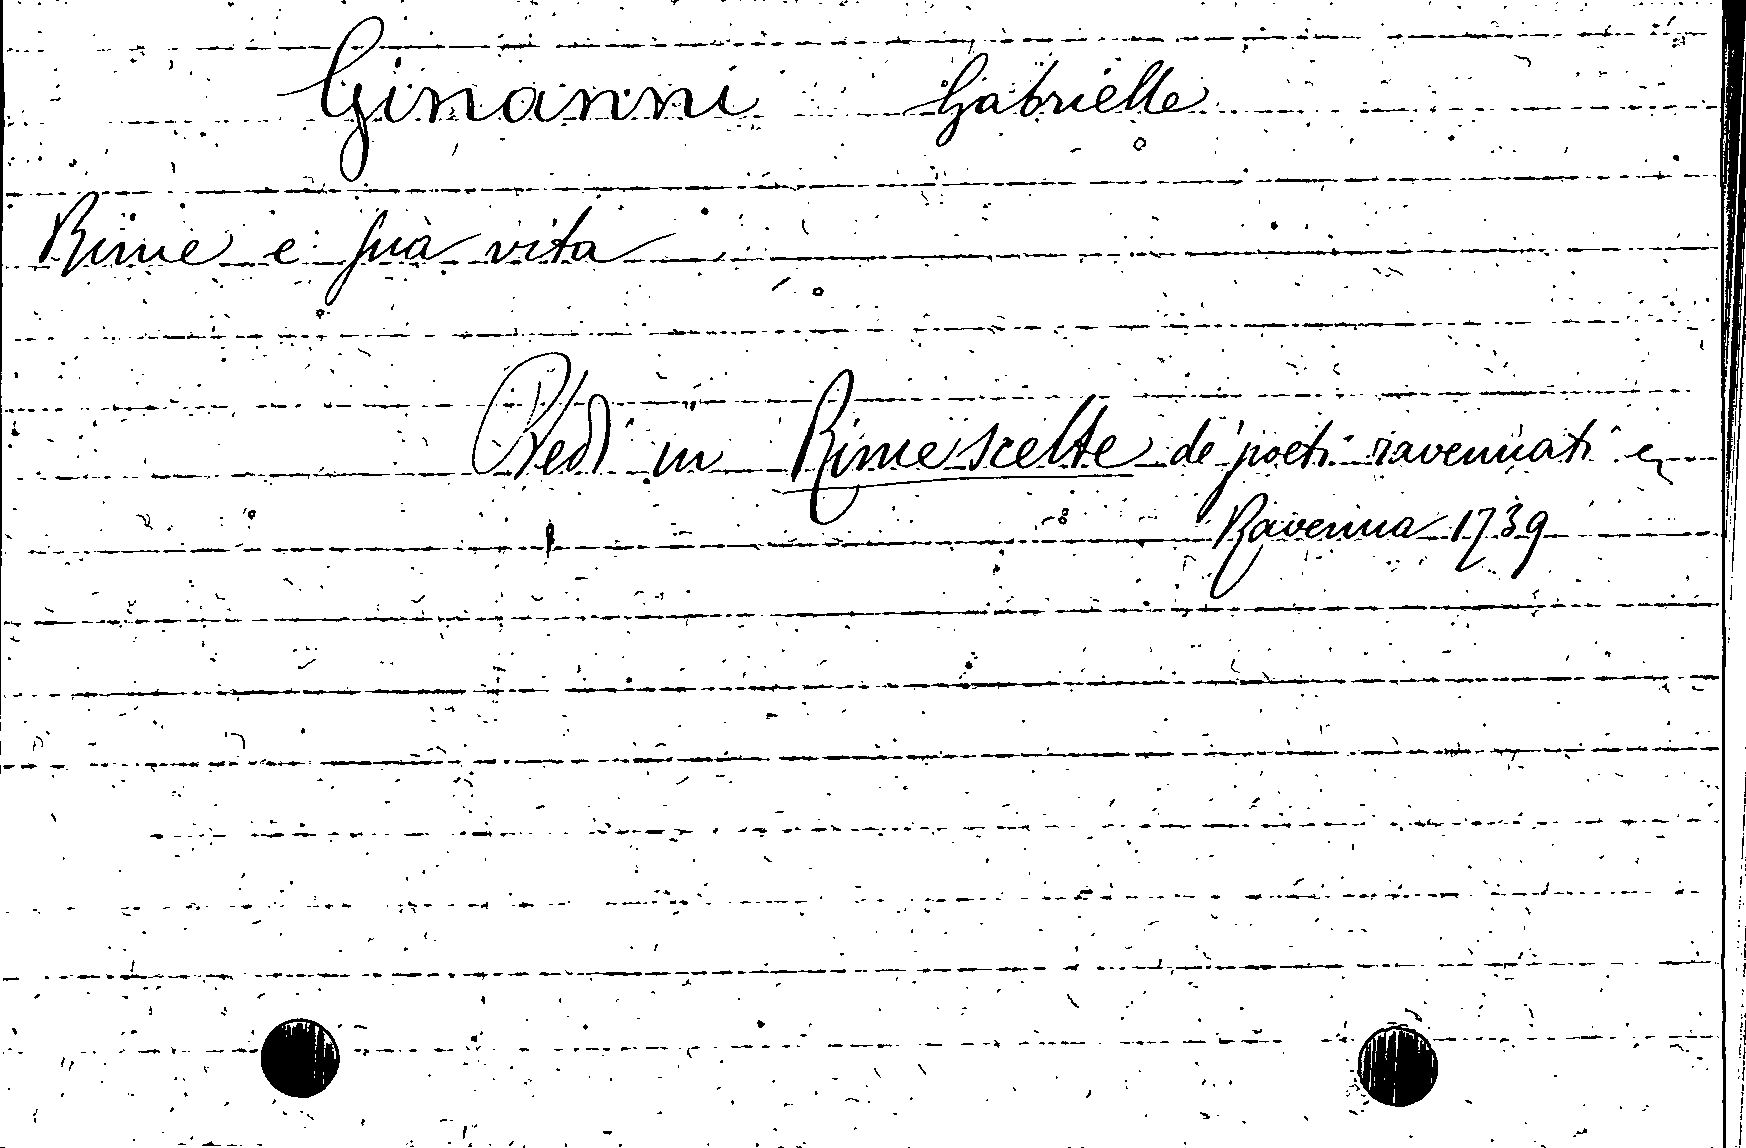 Ginanni Gabrielle
Rime e sua vita
Vedi in Rime scelte de' poeti ravennati ec
Ravenna 1739